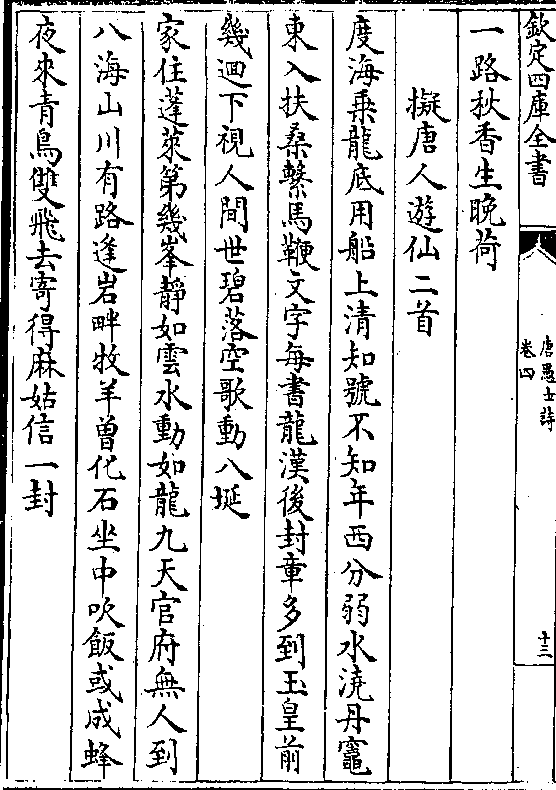 欽定四庫全書
唐愚士詩
卷四
十三
一路秋香生晚荷
擬唐人遊仙二首
度海乘龍底用船上清知號不知年西分弱水澆丹竈
東入扶桑繫馬鞭文字每書龍漢後封章多到玉皇前
幾迴下視人間世碧落空歌動八埏
家住蓬萊第幾峯靜如雲水動如龍九天官府無人到
八海山川有路逢岩畔牧羊曽化石坐中吹飯或成蜂
夜來青鳥雙飛去寄得麻姑信一封